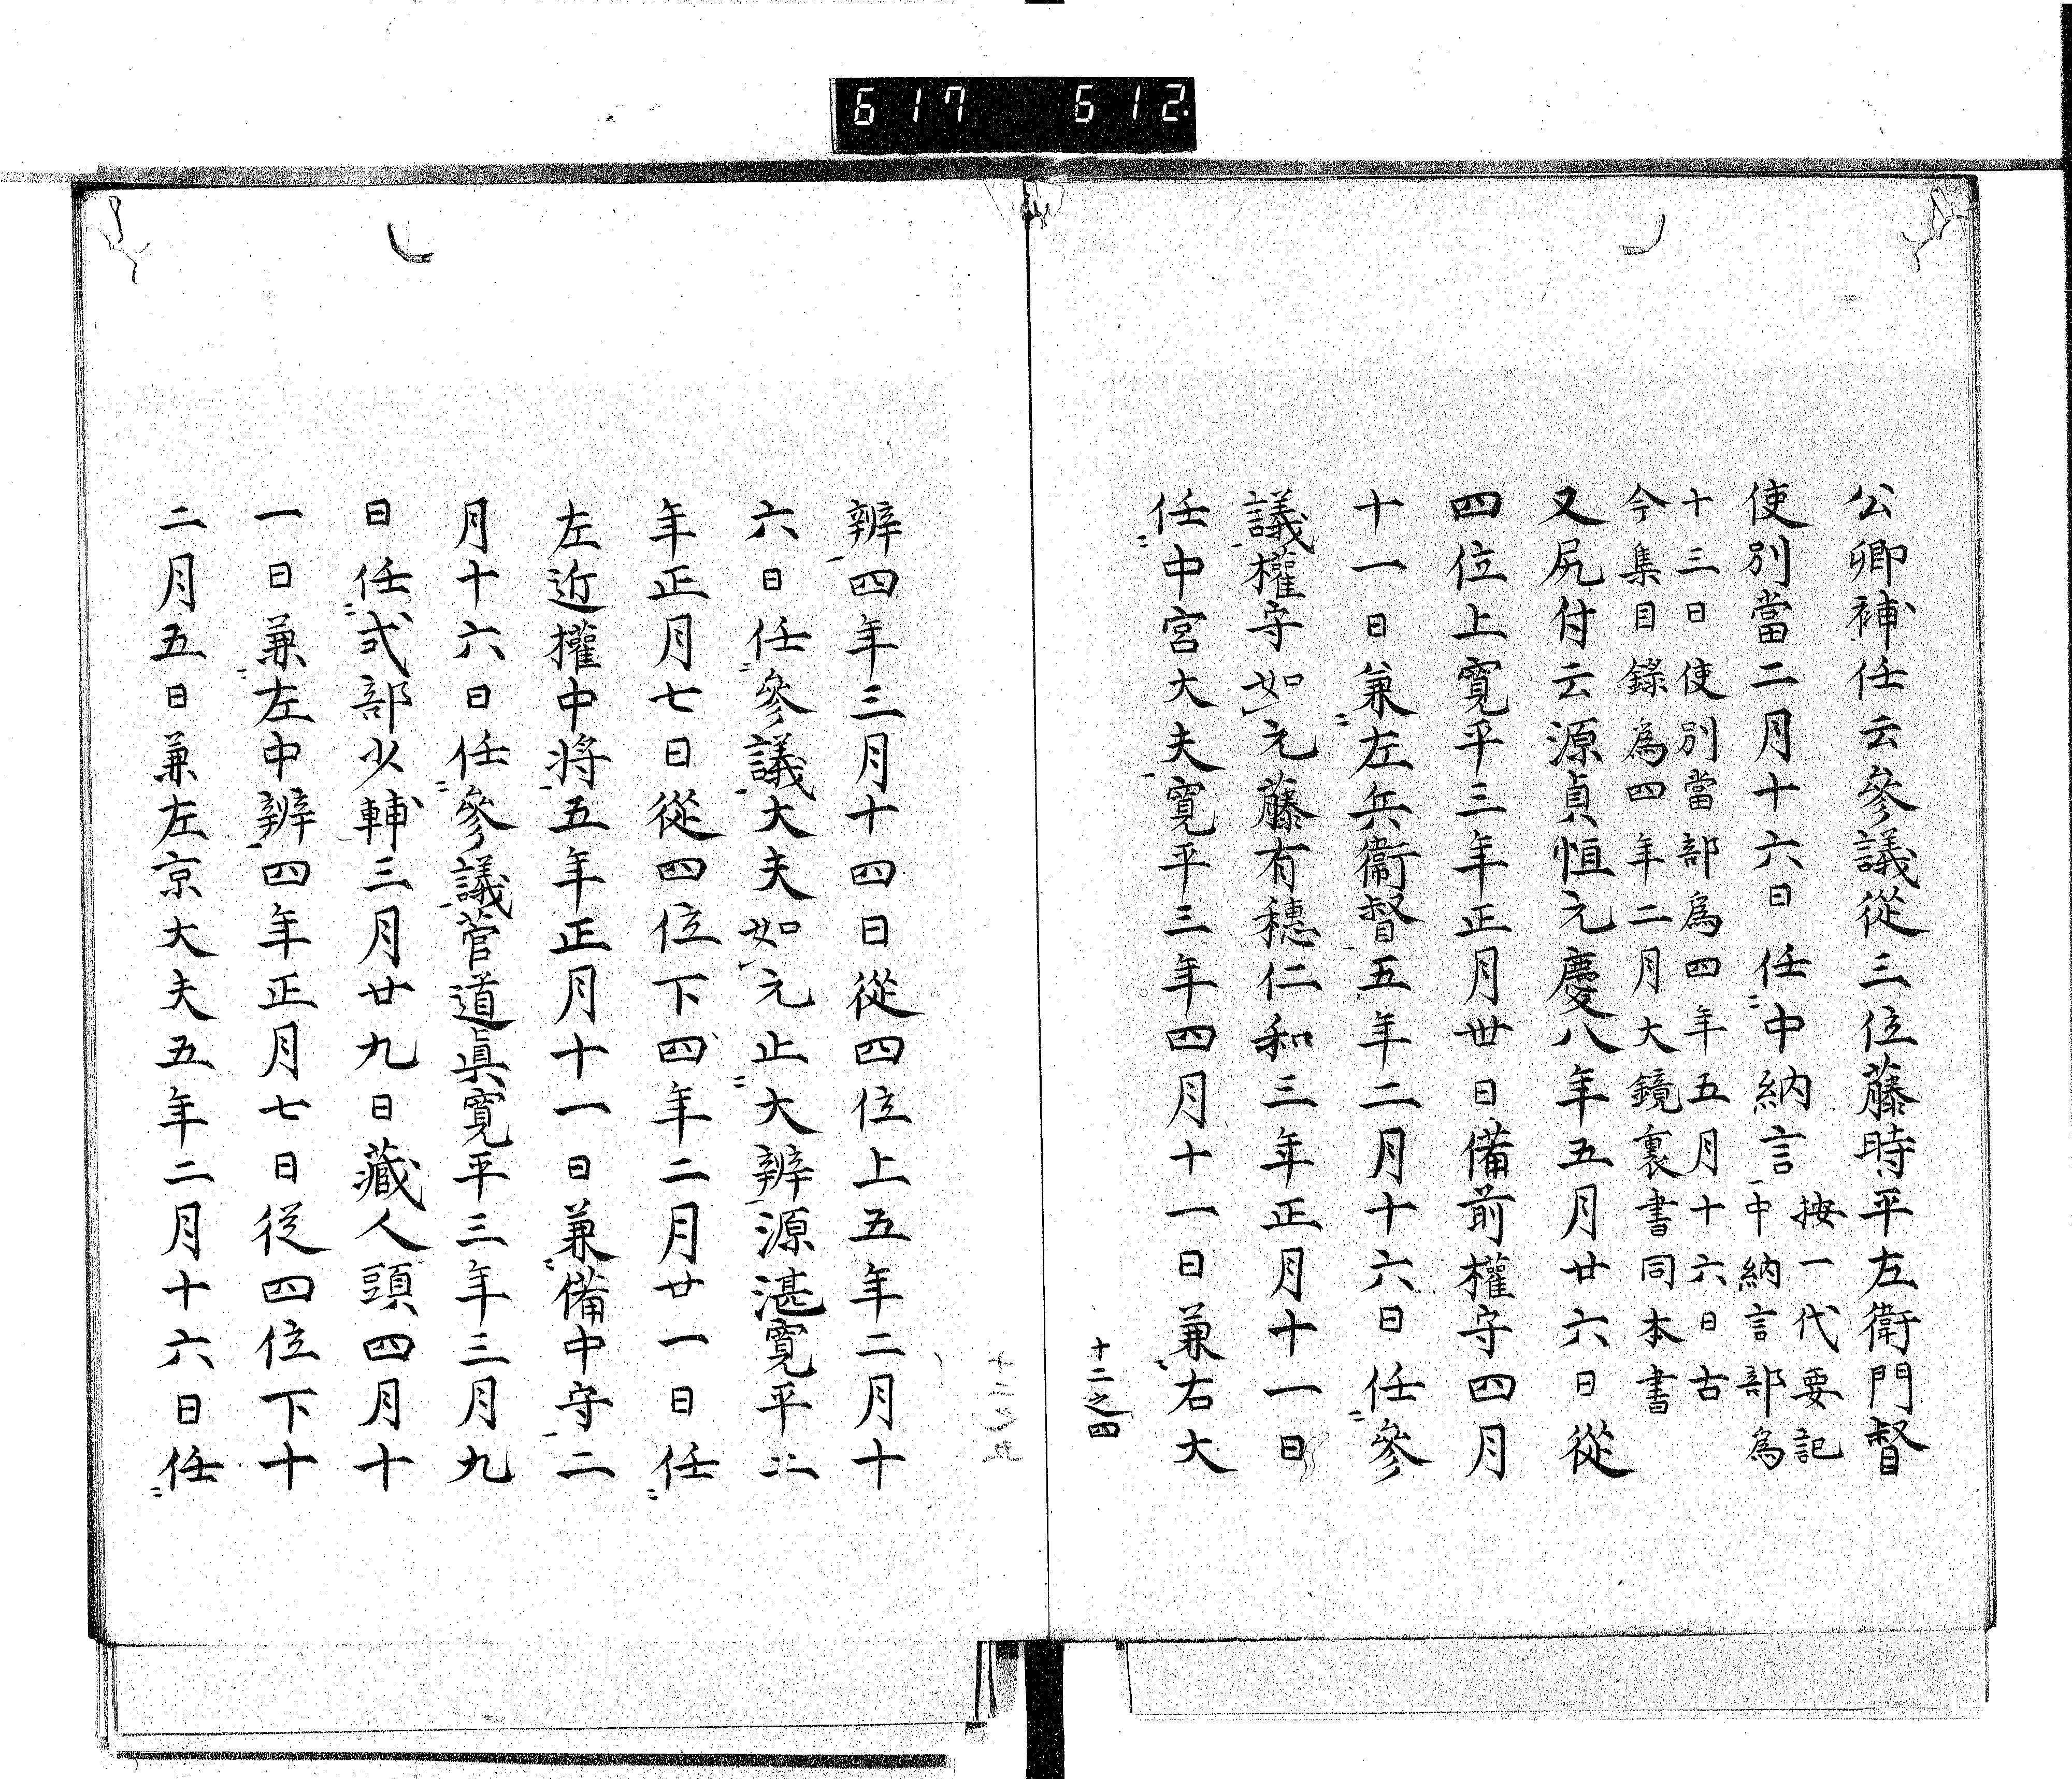 617 612
公卿補任云參議從三位藤時平左衛門督
使別當二月十六日任中納言
按一代要記
中納言部爲
十三日使別當部爲四年五月十六日古
今集目錄爲四年二月大鏡裏書同本書
又尻付云源貞恒元慶八年五月廿六日從
四位上寛平三年正月卅日備前權守四月
十一日兼左兵衞督五年二月十六日任參
議權守如元藤有穗仁和三年正月十一日
任中宮大夫寛平三年四月十一日兼右大
十二之四
辨四年三月十四日從四位上五年二月十
六日任參議大夫如元止大辨源湛寛平二
年正月七日從四位下四年二月廿一日任
左近權中将五年正月十一日兼備中守二
月十六日任參議菅道眞寛平三年三月九
日任式部少輔三月廿九日藏人頭四月十
一日兼左中辨四年正月七日從四位下十
二月五日兼左京大夫五年二月十六日任